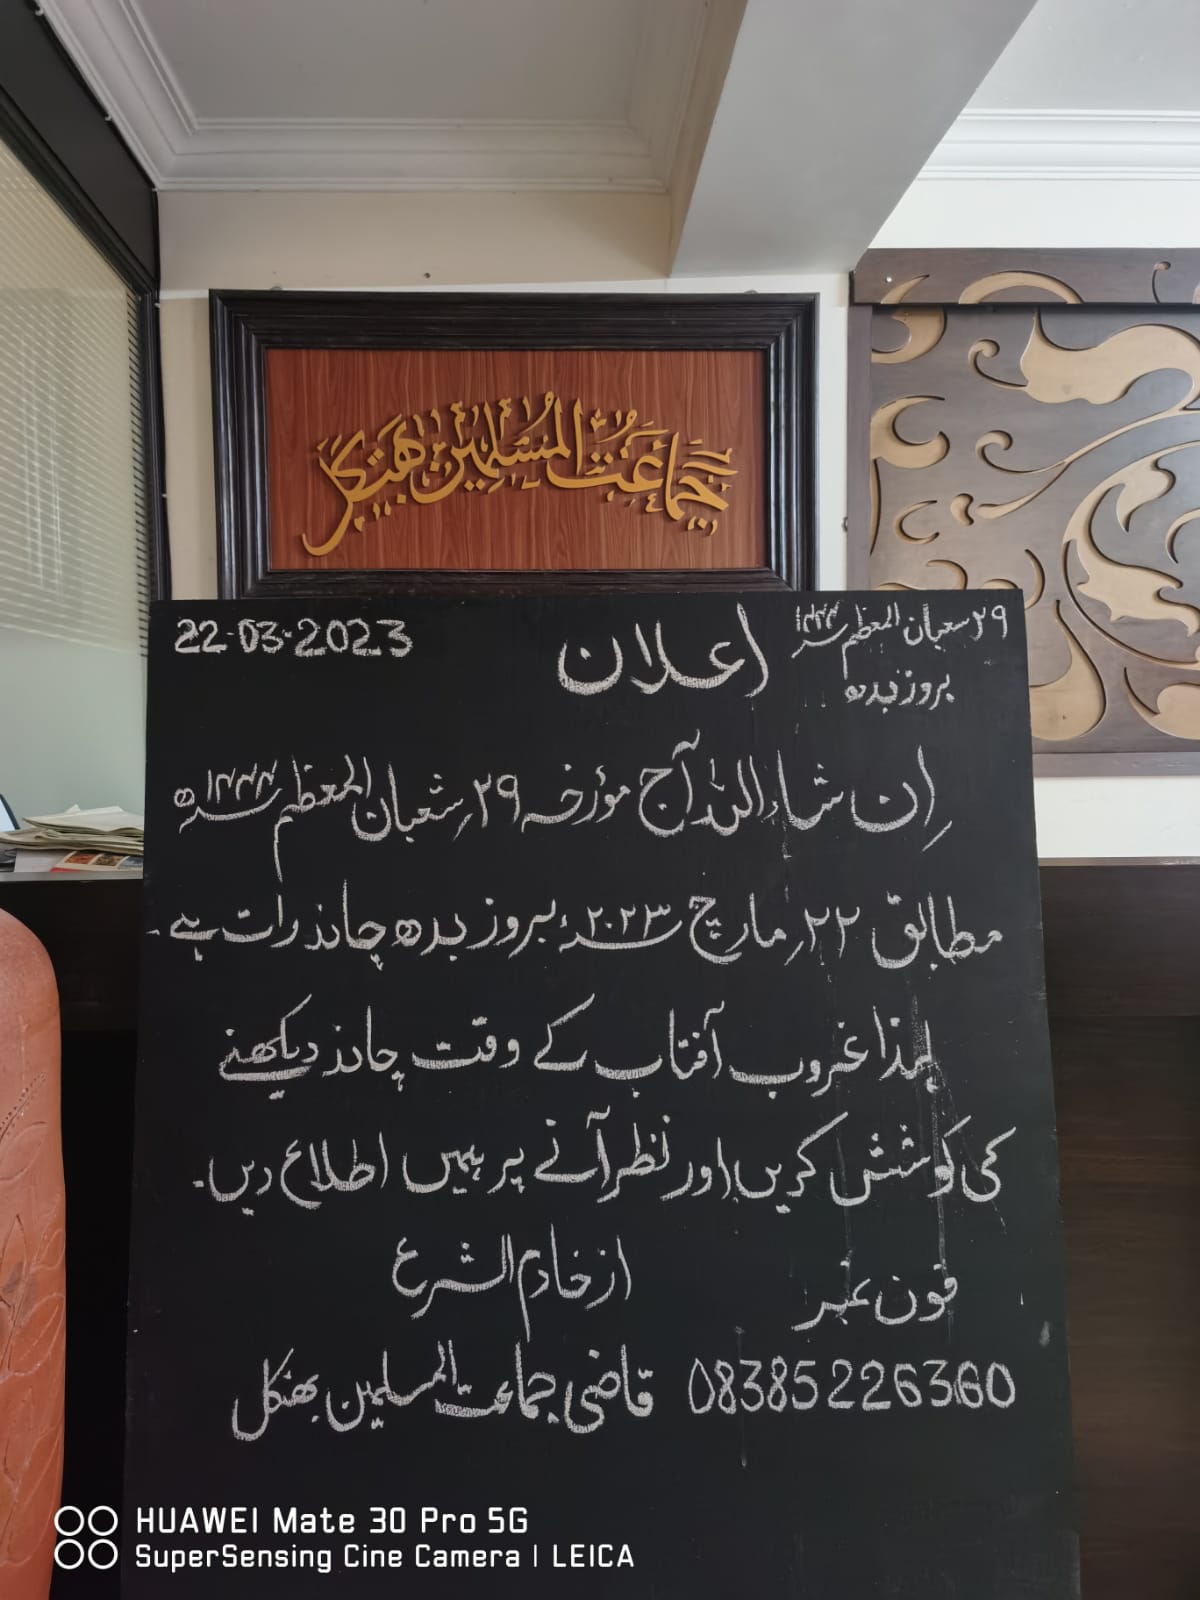 جماعت المسلمین بھٹکل
۲۹ شعبان المعظم سنہ ۱۴۴۴
بروز بدھ
اعلان
22-03-2023
اِن شاء اللہ آج مؤرخہ ۲۹؍ شعبان المعظم سنہ ۱۴۴۴ھ
مطابق ۲۲؍ مارچ سنہ ۲۰۲۳ء بروز بدھ چاند رات ہے۔
لہذا غروب آفتاب کے وقت چاند دیکھنے
کی کوشش کریں اور نظر آنے پر ہمیں اطلاع دیں۔
فون نمبر
08385226360
از خادم الشرع
قاضی جماعت المسلمین بھٹکل
HUAWEI Mate 30 Pro 5G
SuperSensing Cine Camera | LEICA